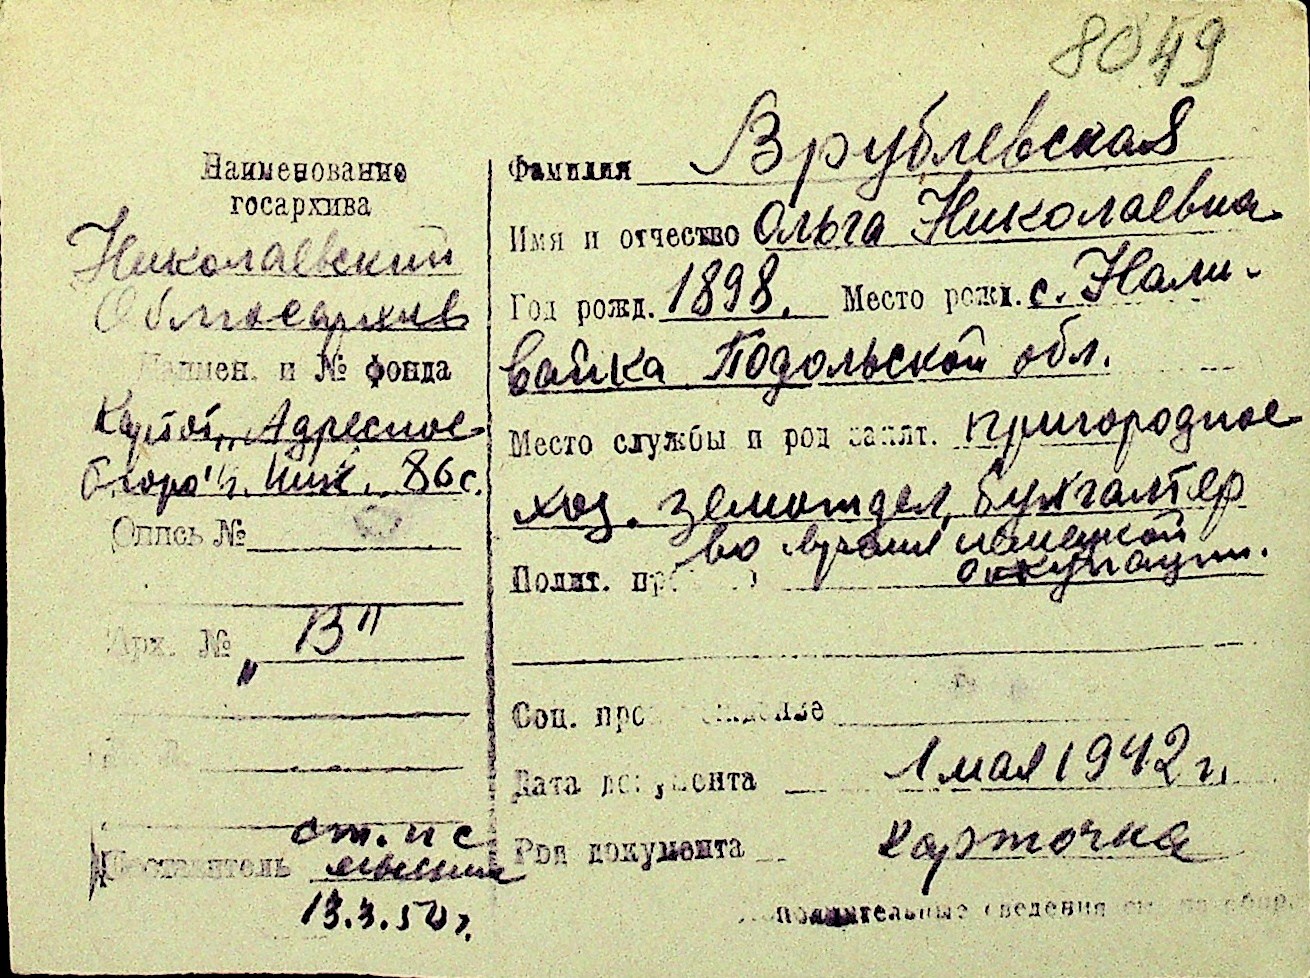 8049
Наименование
госархива
Николаевский
Облгосархив
Наимен. и № фонда
Картот. „Адресное
бюро" г. Ник. 86 с.
Опись №
Арх. № „В"
Составитель ст. н с
13.3.50 г.
Фамилия Врублевская
Имя и отчество Ольга Николаевна
Год рожд. 1898. Место рожд. с. Нали-
вайка Подольской обл.
Место службы и род занят. пригородное
хоз. земотдел, бухгалтер
во время немецкой
Полит. пр оккупации.
Соц. происхождение
Дата документа 1 мая 1942 г.
Род документа карточка
Дополнительные сведения см. на оборо